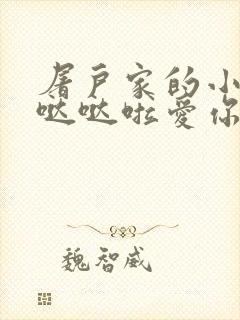 屠户家的小
哒哒啦爱你
魏智威